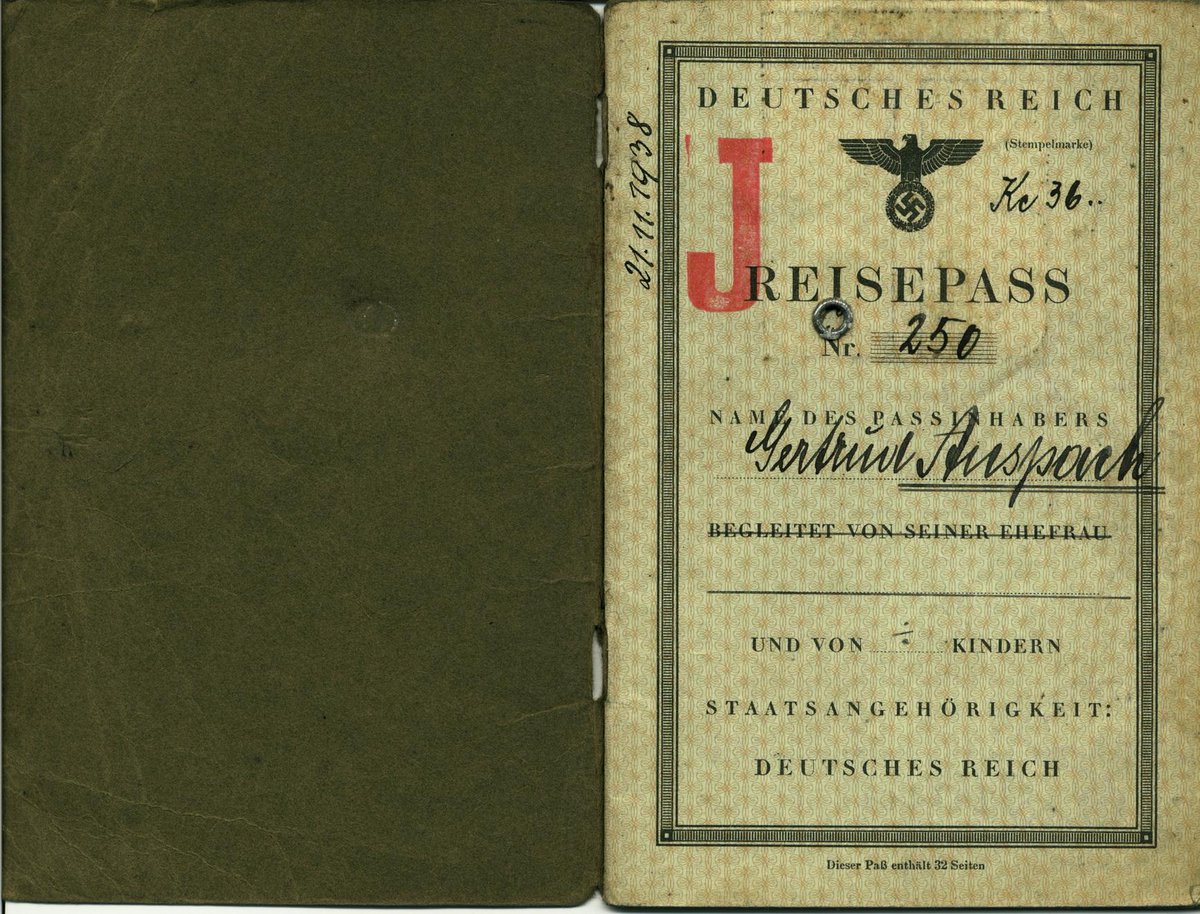 21.11.1938
DEUTSCHES REICH
(Stempelmarke)
Kc 36..
J
REISEPASS
Nr. 250
NAME DES PASSINHABERS
Gertrud Anspach
BEGLEITET VON SEINER EHEFRAU
UND VON ÷ KINDERN
STAATSANGEHÖRIGKEIT:
DEUTSCHES REICH
Dieser Paß enthält 32 Seiten